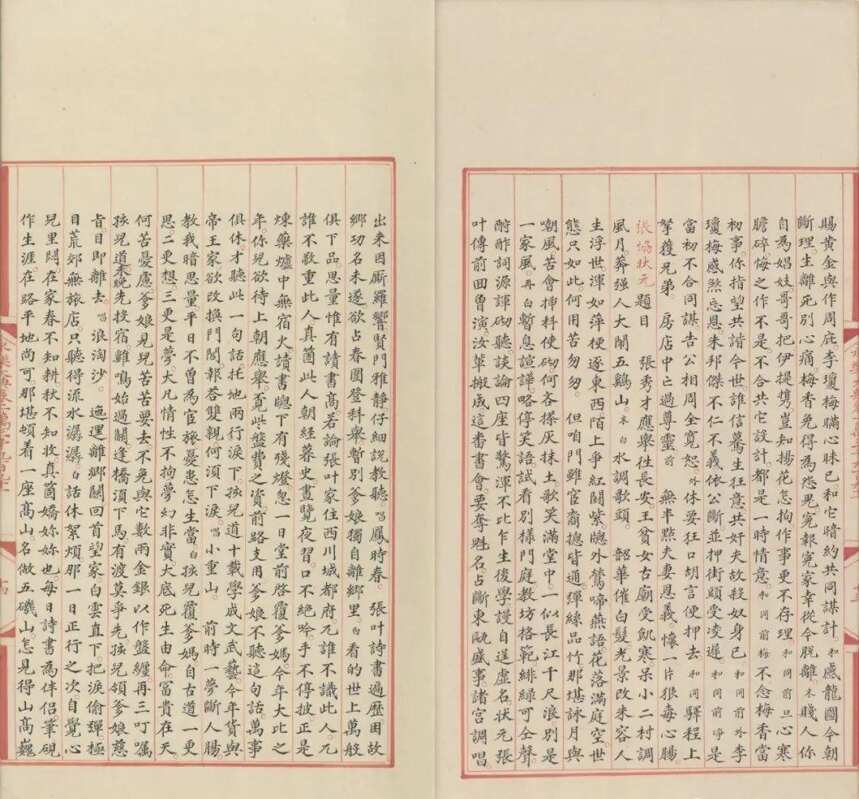 賜黃金與作周庇李瓊梅瞞心昧己和它暗約共同謀計和感龍圖今朝
斷理生離死別心痛梅香免得為怨鬼冤報冤家幸從今脫離末賤人你
自為娼妓哥哥把伊提携豈知揚花怎拘作事更不存理和同前旦心寒
膽碎悔之作不是不合共它設計都是一時情意和同前梅不念梅香當
初事你指望共諧今世誰信驀生狂意共奸夫故殺奴身已和同前外李
瓊梅感煞忘恩朱邦傑不仁不義依公斷並押街頭受凌遲和同前淨是
當初不合同謀告公相周全寬恕外休要狂口胡言便押去和驛程上
拏獲兄弟 房店中之過尊靈前 無半點夫妻恩義 懷一片狠毒心腸
張協狀元 題目 張秀才應舉往長安王貧女古廟受飢寒呆小二村調
風月莽强人大鬧五雞山 末白水調歌頭 韶華催白髮光景改朱容人
生浮世渾如萍梗逐東西陌上爭紅鬪紫牕外鶯啼燕語花落滿庭空世
態只如此何用苦匆匆 但咱門雖宦裔總皆通彈絲品竹那堪詠月與
嘲風苦會揷科使砌何吝搽灰抹土歌笑滿堂中一似長江千尺浪別是
一家風再白暫息喧譁略停笑語試看別樣門庭教坊格範緋綠可仝聲
酬酢詞源諢砌聽談論四座皆驚渾不比乍生後學謾自逞虛名狀元張
叶傳前回曾演汝輩搬成這番書會要奪魁名占斷東甌盛事諸宮調唱
出來因厮羅響賢門雅靜仔細說教聽唱鳳時春 張叶詩書遍歷困故
鄉功名未遂欲占春圍登科舉暫別爹娘獨自離鄉里白看的世上萬般
俱下品思量惟有讀書高若論張叶家住西川城都府兀誰不識此人兀
誰不敬重此人真箇此人朝經暮史晝覽夜習口不絕吟手不停披正是
煉藥爐中無宿火讀書牕下有殘燈忽一日堂前啓覆爹媽今年大比之
年你兒欲待上朝應舉覓些盤費之資前路支用爹娘不聽這句話萬事
俱休才聽此一句話托地兩行淚下孩兒道十載學成文武藝今年貨與
帝王家欲改換門閭報荅雙親何須下淚唱小重山 前時一夢斷人腸
教我暗思量平日不曾為宦旅憂患怎生當白孩兒覆爹媽自古道一更
思二更想三更是夢大凡情性不拘夢幻非實大底死生由命富貴在天
何苦憂慮爹娘見兒苦苦要去不免與它數兩金銀以作盤纏再三叮囑
孩兒道未晚先投宿雞鳴始過關逢橋須下馬有渡莫爭先孩兒領爹娘慈
旨目即離去唱浪淘沙 迤邐離鄉關回首望家白雲直下把淚偷彈極
目荒郊無旅店只聽得流水潺潺白話休絮煩那一日正行之次自覺心
兒里悶在家春不知耕秋不知收真箇嬌妳妳也每日詩書為伴侶筆硯
作生涯在路平地尚可那堪頓着一座高山名做五磯山怎見得山高巍